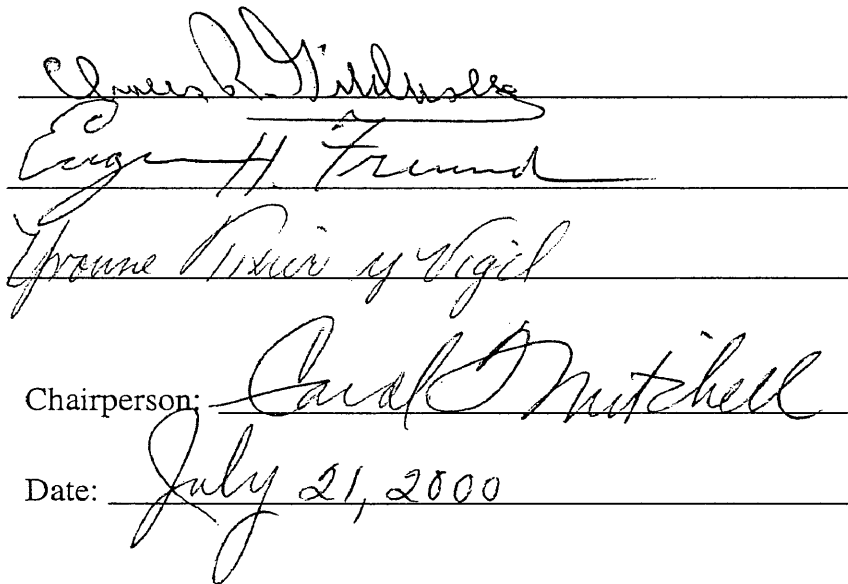 R.
Eugene H. Freund
Yvonne Tixier y Vigil
Chairperson: Carol T Mitchell
Date: July 21, 2000